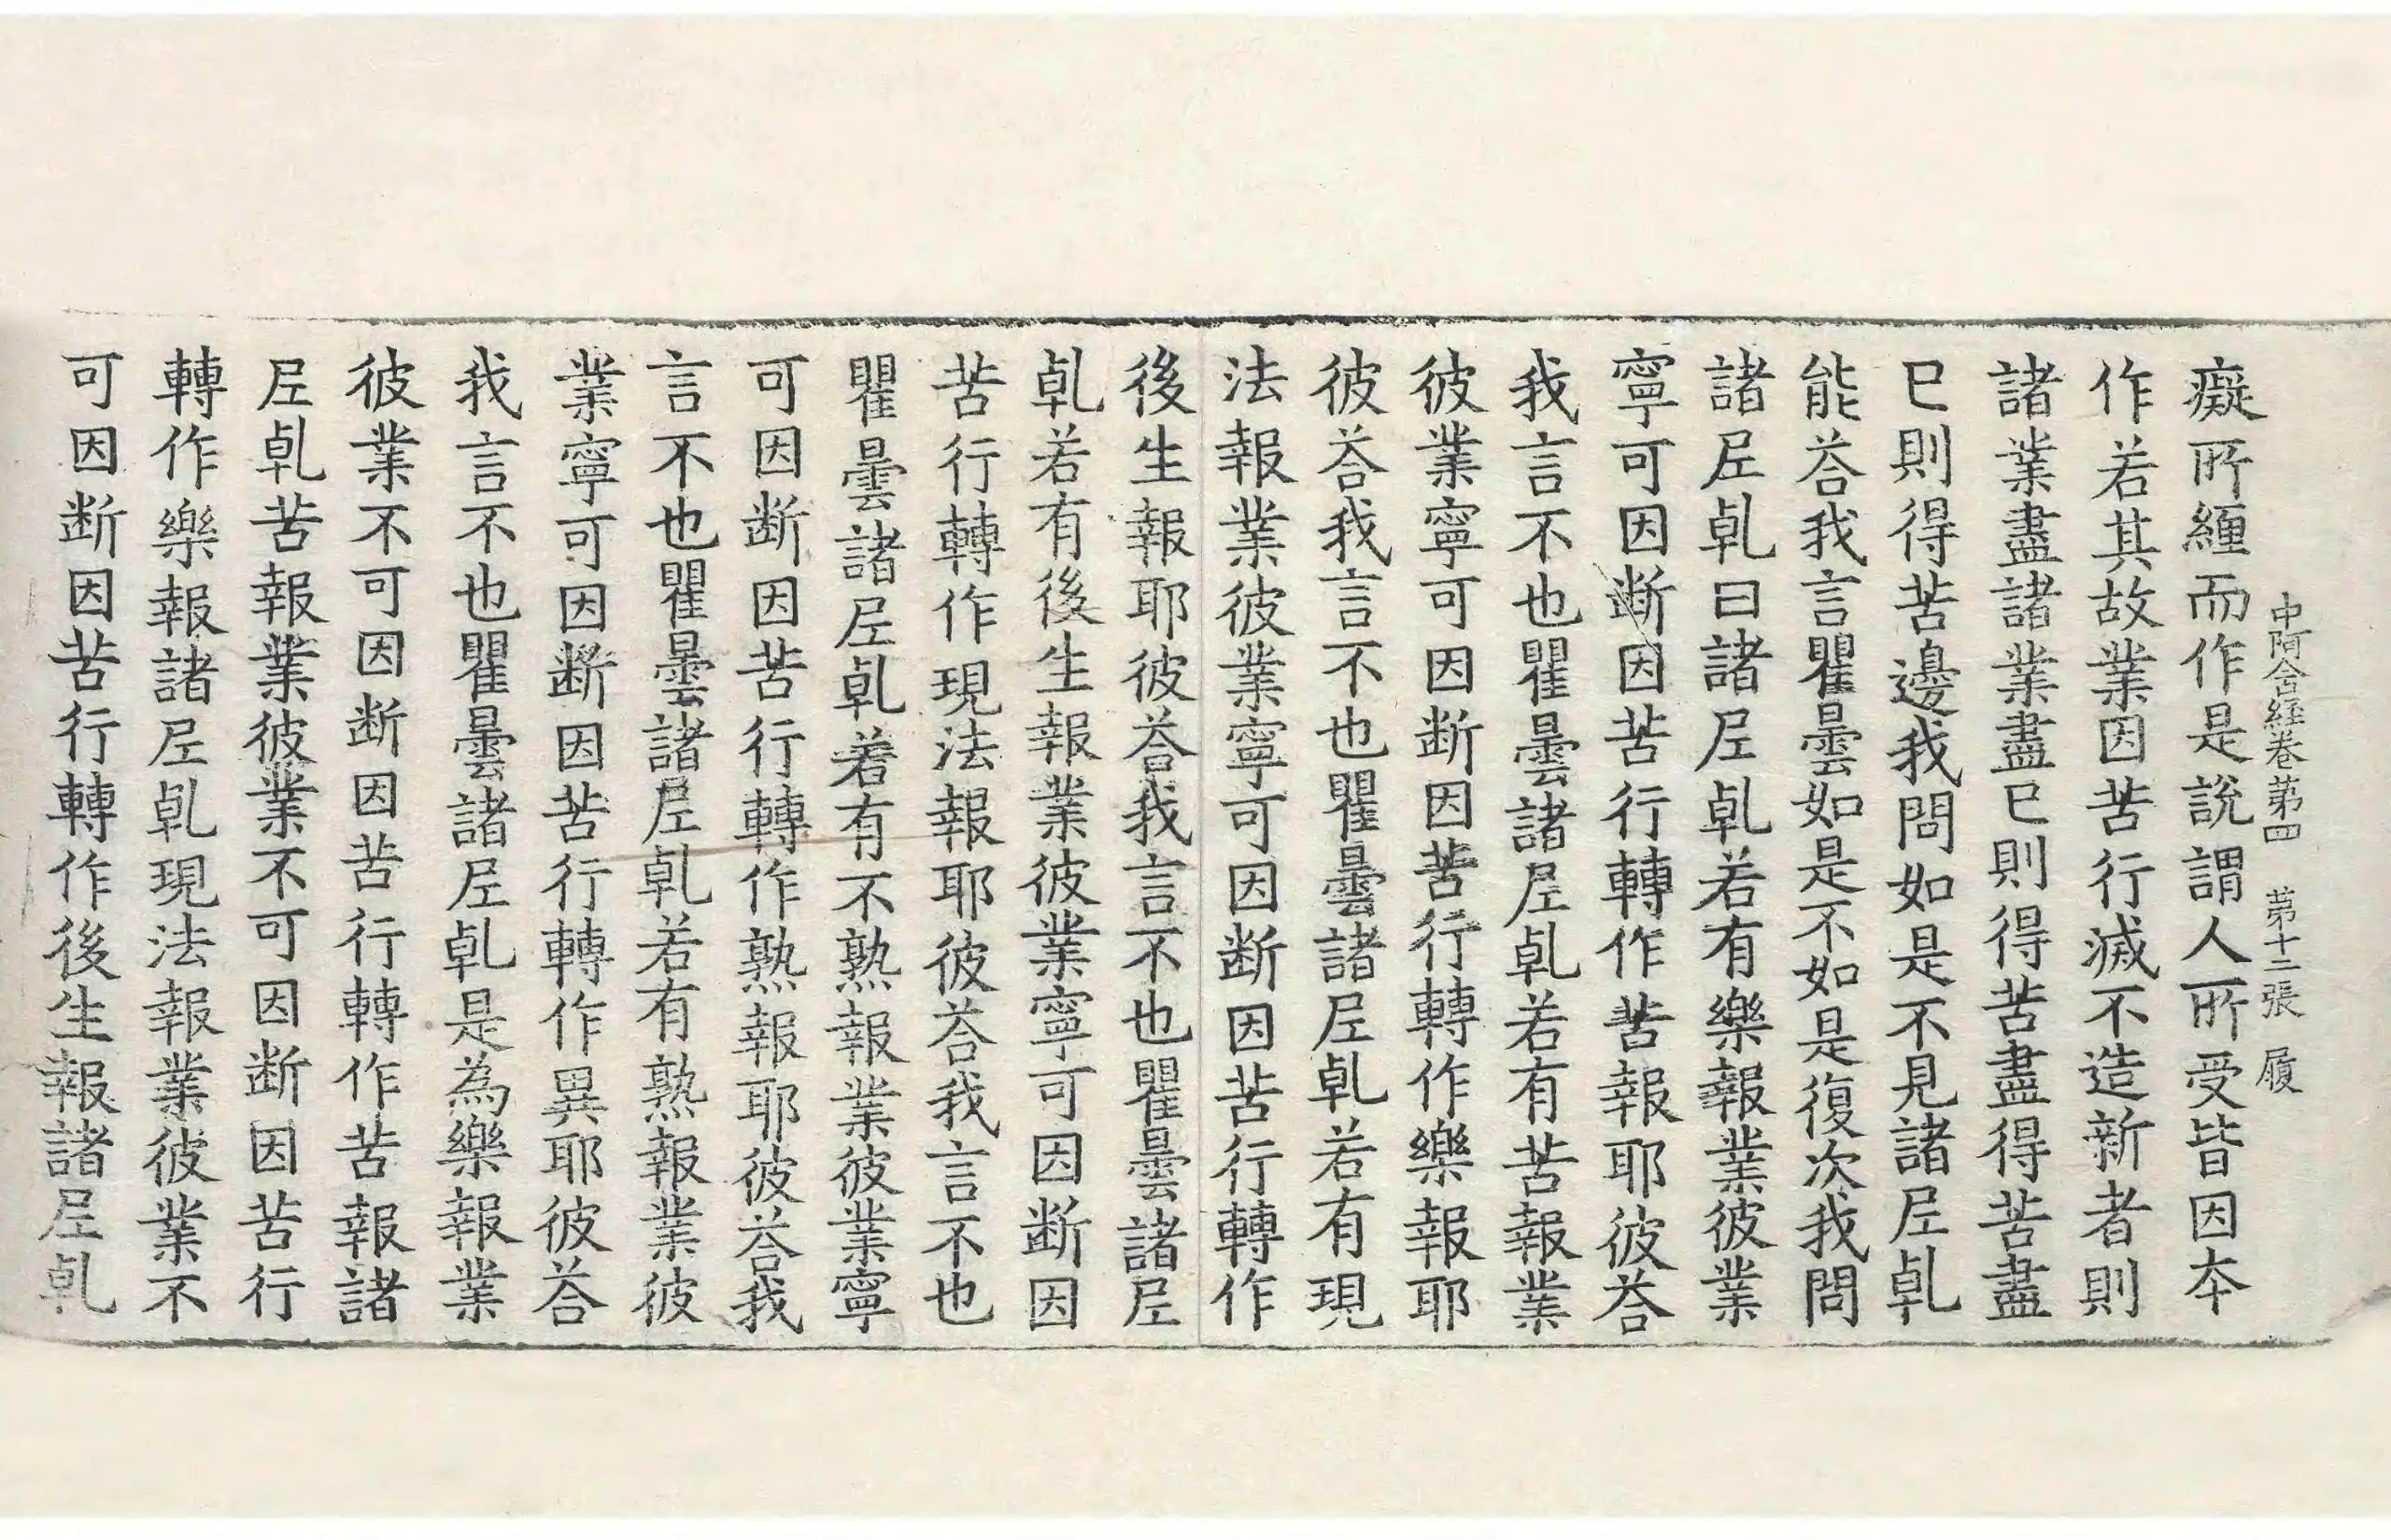 中阿含經卷苐四 苐十二張 履
癡所纏而作是說謂人所受皆因本
作若其故業因苦行滅不造新者則
諸業盡諸業盡已則得苦盡得苦盡
已則得苦邊我問如是不見諸𡰱乹
能荅我言瞿曇如是不如是復次我問
諸𡰱乹曰諸𡰱乹若有樂報業彼業
寧可因断因苦行轉作苦報耶彼荅
我言不也瞿曇諸𡰱乹若有苦報業
彼業寧可因断因苦行轉作樂報耶
彼荅我言不也瞿曇諸𡰱乹若有現
法報業彼業寧可因断因苦行轉作
後生報耶彼荅我言不也瞿曇諸𡰱
乹若有後生報業彼業寧可因断因
苦行轉作現法報耶彼荅我言不也
瞿曇諸𡰱乹若有不熟報業彼業寧
可因断因苦行轉作熟報耶彼荅我
言不也瞿曇諸𡰱乹若有熟報業彼
業寧可因断因苦行轉作異耶彼荅
我言不也瞿曇諸𡰱乹是為樂報業
彼業不可因断因苦行轉作苦報諸
𡰱乹苦報業彼業不可因断因苦行
轉作樂報諸𡰱乹現法報業彼業不
可因断因苦行轉作後生報諸𡰱乹